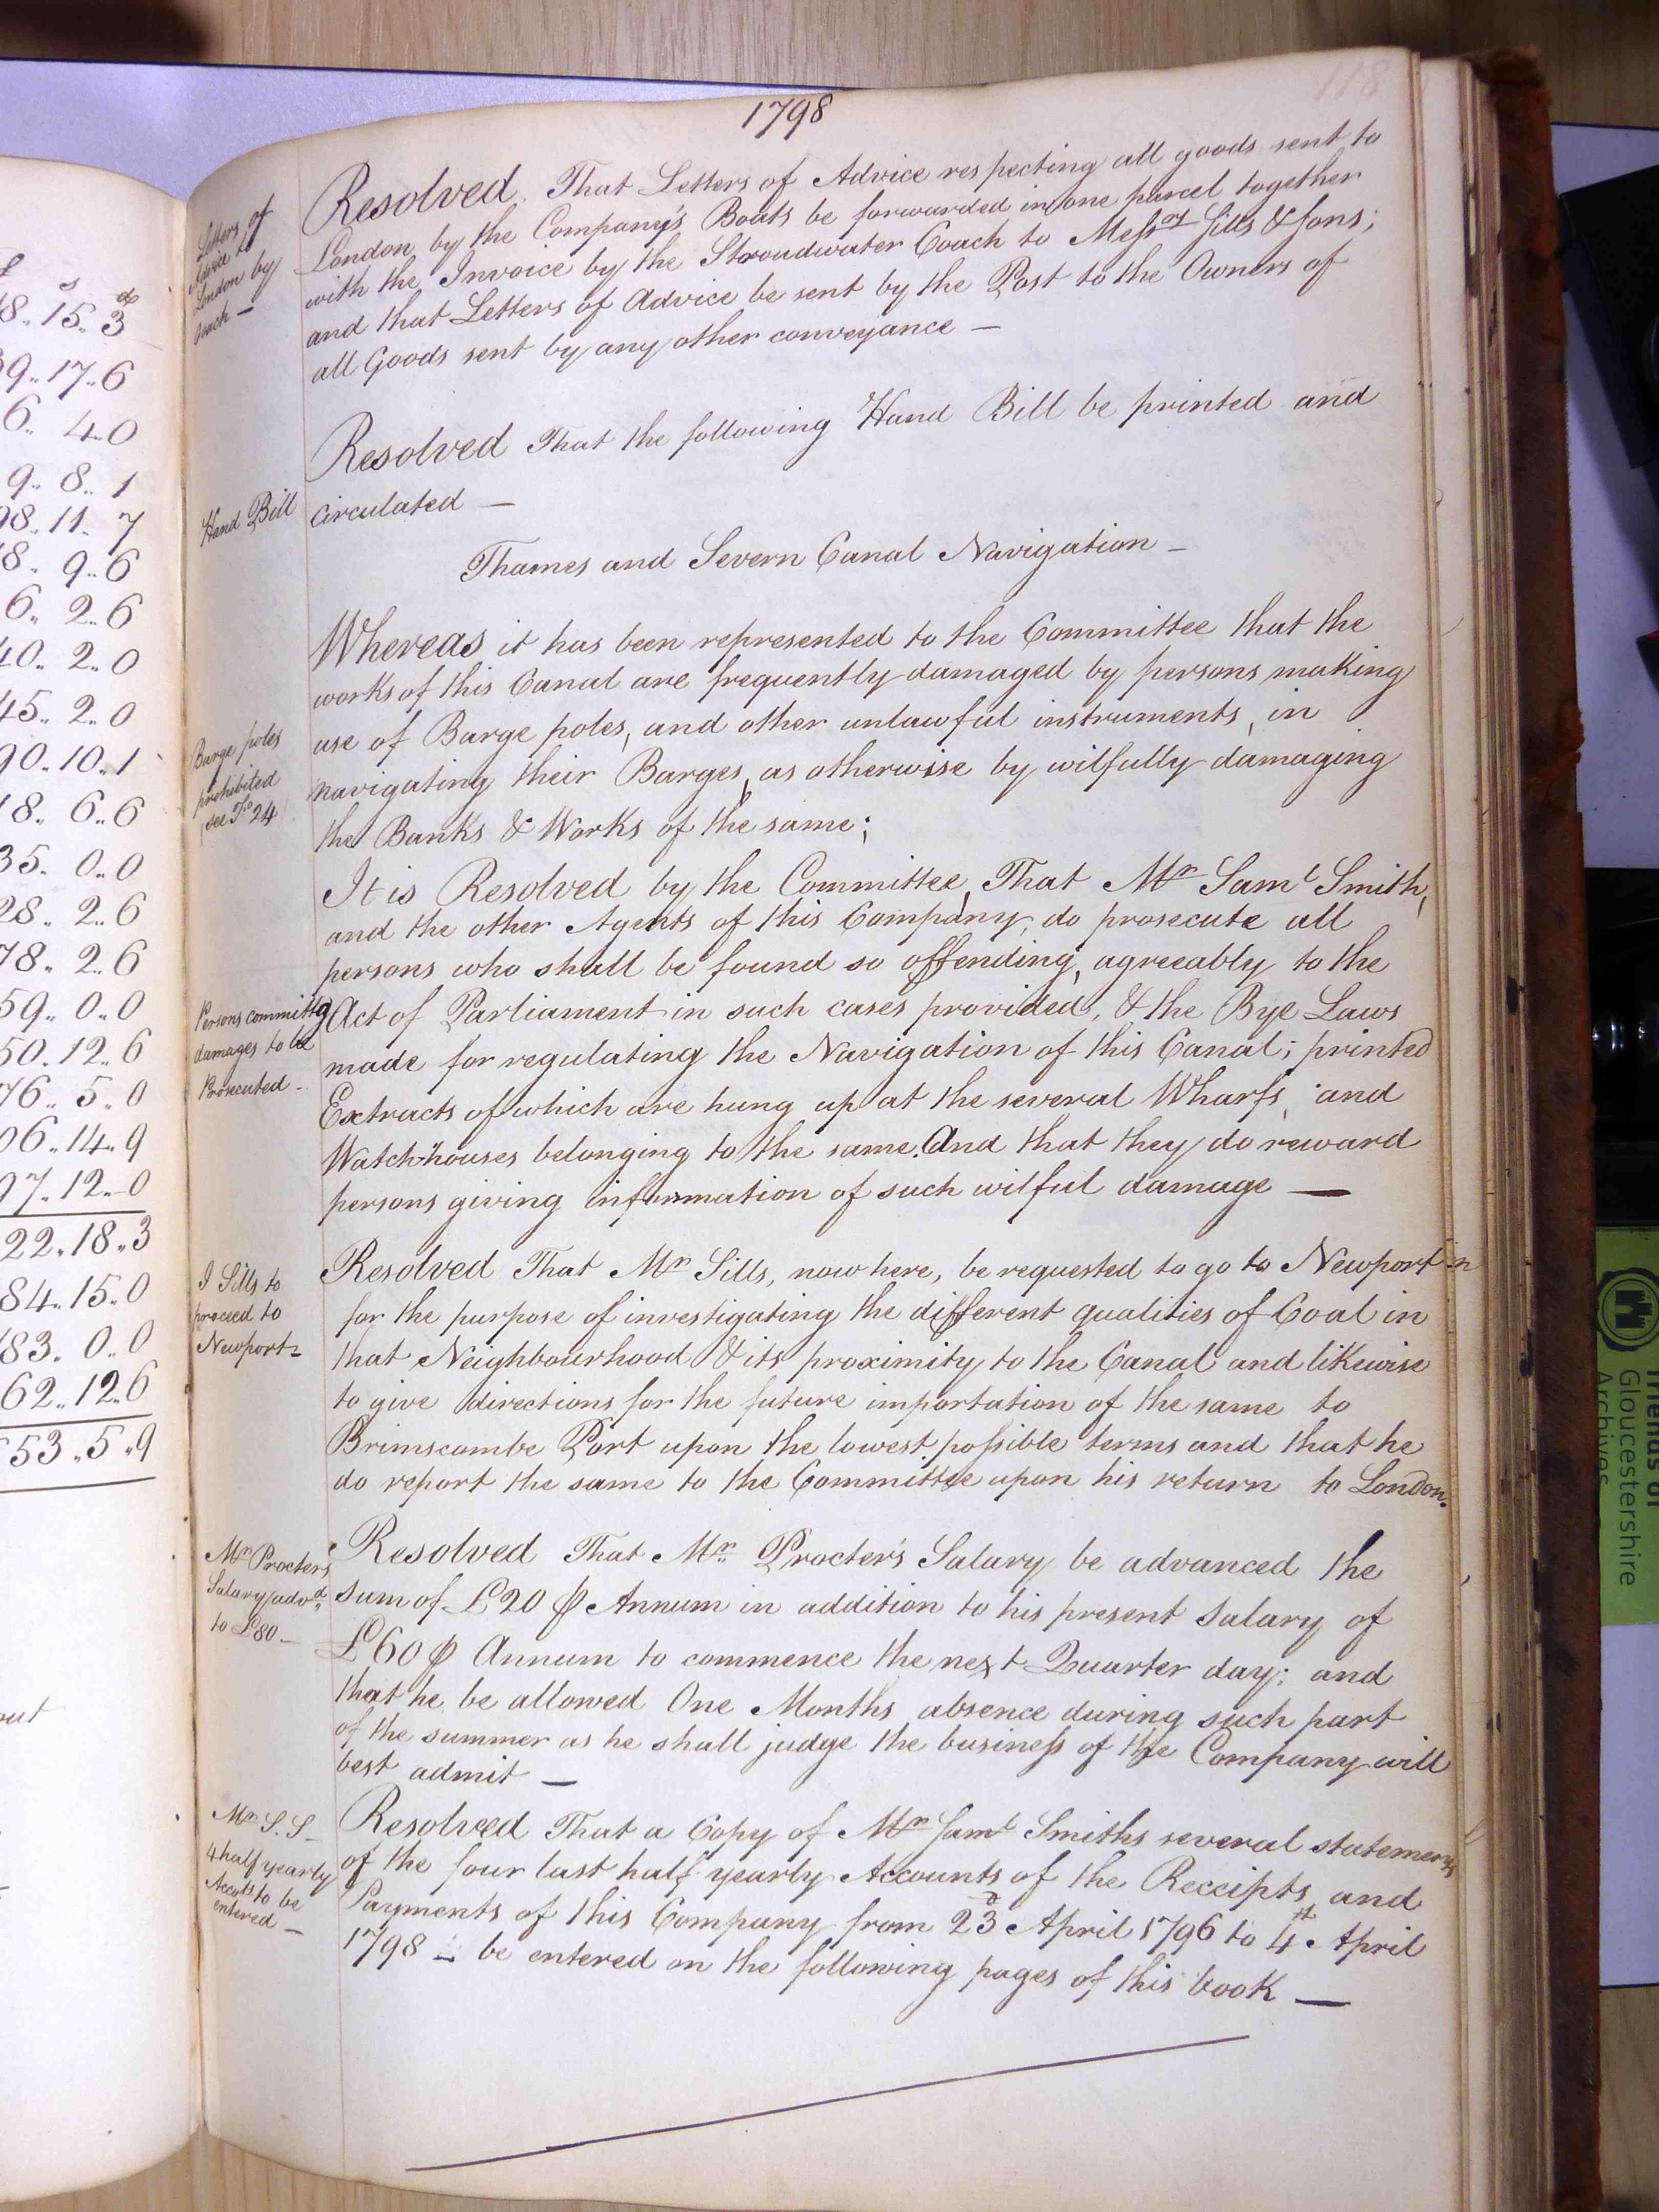 118
1798
Letters of
Advice to
London by
Coach —
Resolved. That Letters of Advice respecting all goods sent to
London by the Company's Boats be forwarded in one parcel together
with the Invoice by the Stroudwater Coach to Messrs Sills & Sons;
and that Letters of Advice be sent by the Post to the Owners of
all Goods sent by any other conveyance —
Hand Bill
Resolved That the following Hand Bill be printed and
circulated —
Thames and Severn Canal Navigation —
Whereas it has been represented to the Committee that the
works of this Canal are frequently damaged by persons making
use of Barge poles, and other unlawful instruments, in
navigating their Barges, as otherwise by wilfully damaging
the Banks & Works of the same;
Barge poles
prohibited
see Fo 24
It is Resolved by the Committee, That Mr Saml Smith,
and the other Agents of this Company, do prosecute all
persons who shall be found so offending, agreeably to the
Act of Parliament in such cases provided, & the Bye Laws
made for regulating the Navigation of this Canal; printed
Extracts of which are hung up at the several Wharfs, and
Watch-houses belonging to the same. And that they do reward
persons giving information of such wilful damage —
Persons committg
damages to be
Prosecuted —
I Sills to
proceed to
Newport —
Resolved That Mr Sills, now here, be requested to go to Newport in
for the purpose of investigating the different qualities of Coal in
that Neighbourhood & its proximity to the Canal and likewise
to give directions for the future importation of the same to
Brimscombe Port upon the lowest possible terms and that he
do report the same to the Committee upon his return to London.
Mr Procters
Salary advd
to £80 —
Resolved That Mr Procter's Salary be advanced the
sum of £20 ⅌ Annum in addition to his present Salary of
£60 ⅌ Annum to commence the next Quarter day; and
that he be allowed One Months absence during such part
of the summer as he shall judge the business of the Company will
best admit —
Mr S. S—
4 half yearly
Accots to be
entered —
Resolved That a Copy of Mr Saml Smiths several statements
of the four last half yearly Accounts of the Receipts and
Payments of this Company from 23d April 1796 to 4th April
1798 — be entered on the following pages of this book —
£ s d
8.. 15.. 3
9.. 17.. 6
6.. 4.. 0
9.. 8.. 1
98.. 11.. 7
8.. 9.. 6
6.. 2.. 6
40.. 2.. 0
45.. 2.. 0
90.. 10.. 1
8.. 6.. 6
35.. 0.. 0
28.. 2.. 6
78.. 2.. 6
59.. 0.. 0
50.. 12.. 6
76.. 5.. 0
06.. 14.. 9
97.. 12.. 0
22.. 18.. 3
84.. 15.. 0
83.. 0.. 0
62.. 12.. 6
53.. 5.. 9
Friends of
Gloucestershire
Archives